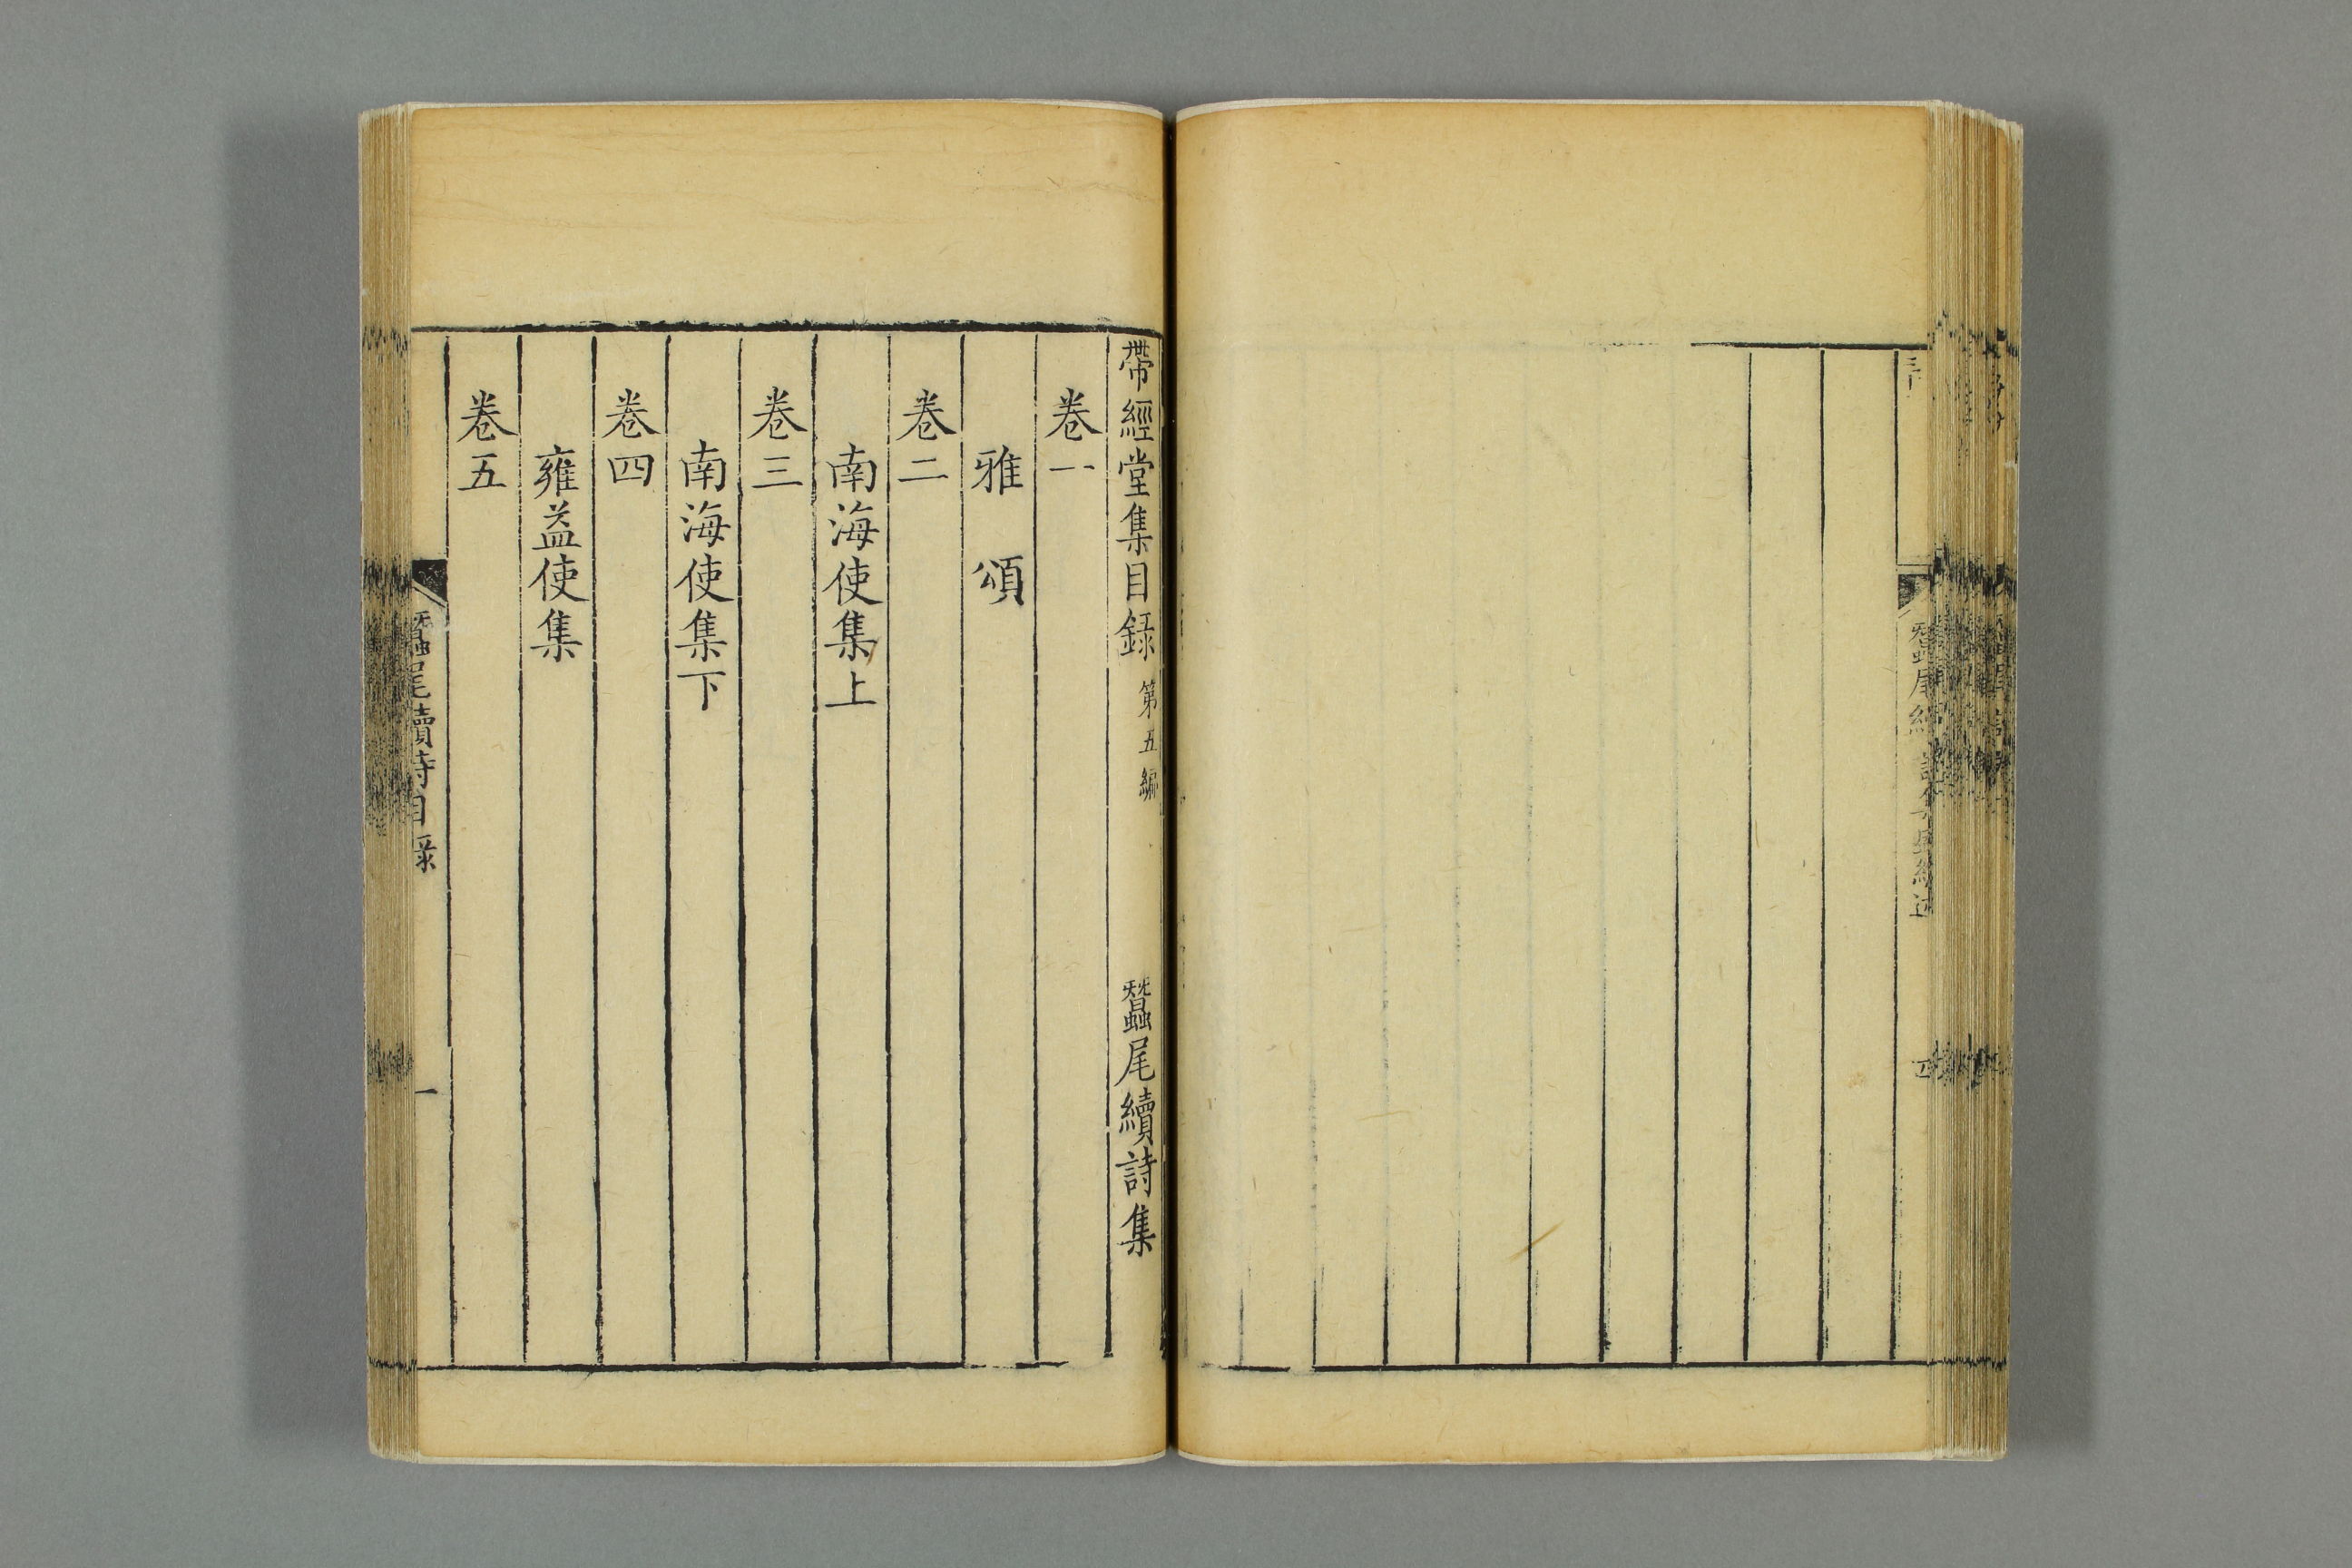 帶經堂集目録 第五編 蠶尾續詩集
卷一
雅 頌
卷二
南海使集上
卷三
南海使集下
卷四
雍益使集
卷五
蠶尾續詩目録 一